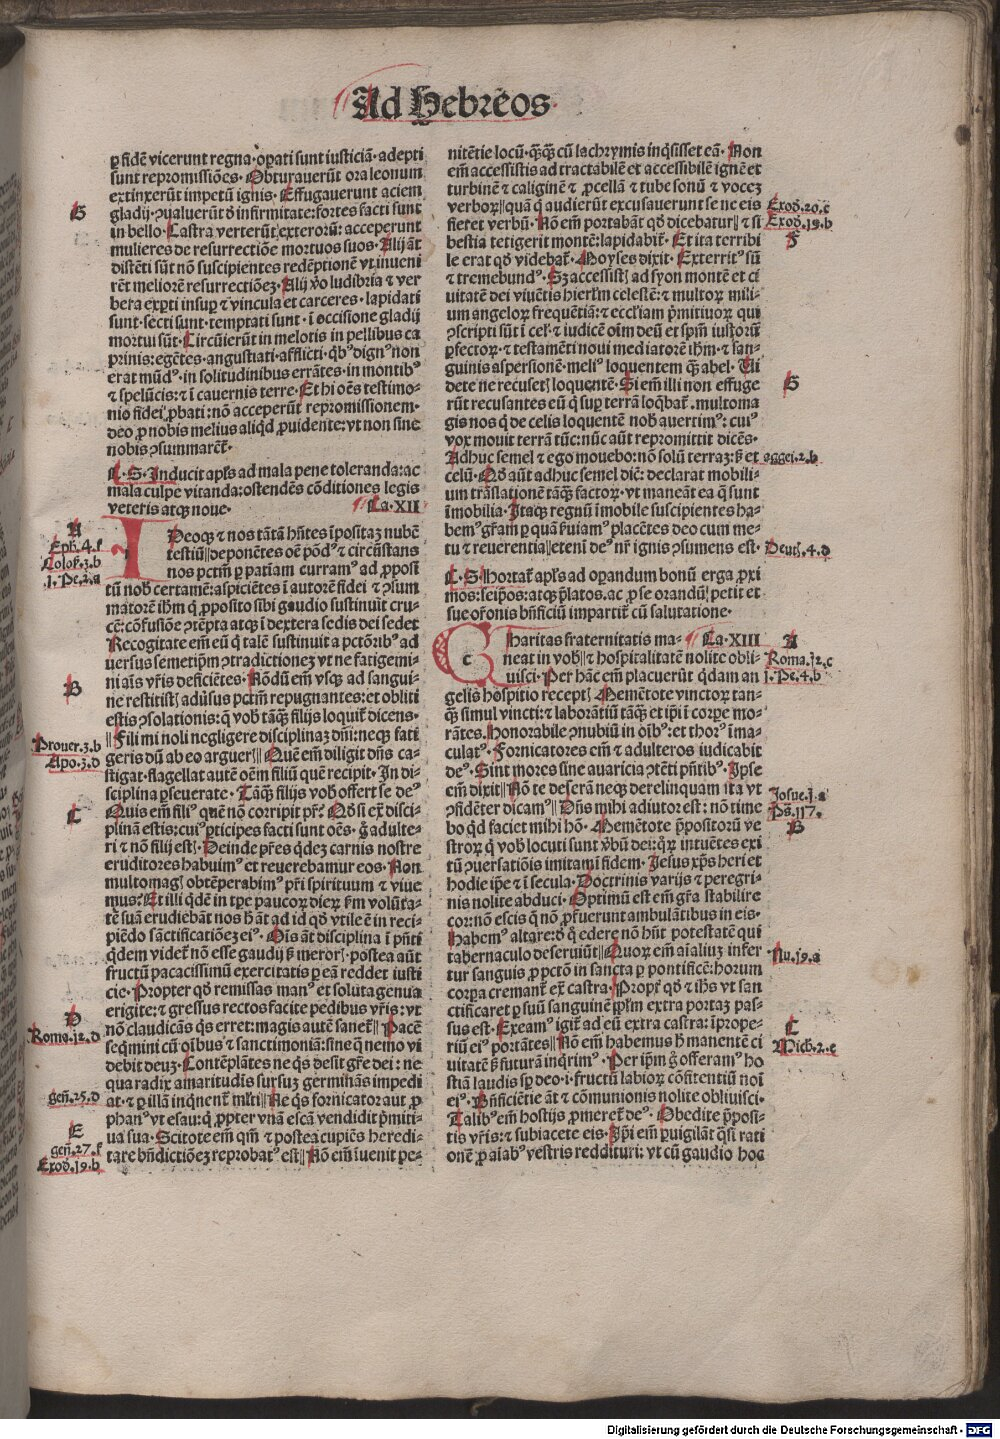 Ad Hebreos.
ꝑ fidē vicerunt regna· oꝑati sunt iusticiā· adepti
sunt repromissiões· Obturauerūt ora leonum
extinxerūt impetū ignis· Effugauerunt aciem
G
gladij· ꝯualuerūt ð infirmitate: fortes facti sunt
in bello· Castra verterūt exteroꝝ: acceperunt
mulieres de resurrectiõe mortuos suos· Alij āt
distēti sūt nõ suscipientes redēptionē vt inueni
rēt meliorē resurrectiõeꝫ· Alij v̊o ludibria ⁊ ver
bera exꝑti insuꝑ ⁊ vincula et carceres· lapidati
sunt· secti sunt· temptati sunt· ī occisione gladij
mortui sūt· Circūierūt in melotis in pellibus ca
prinis: egētes· angustiati· afflicti· qͥbꝰ dignꝰ non
erat mūdꝰ· in solitudinibus errātes· in montibꝰ
⁊ spelūcis: ⁊ ī cauernis terre· Et hi oēs testimo-
nio fidei ꝓbati: nõ acceperūt repromissionem·
deo ꝓ nobis melius aliqͥd ꝓuidente: vt non sine
nobis ꝯsummarēt̃·
C· S· Inducit apl̃s ad mala pene toleranda: ac
mala culpe vitanda: ostendēs cõditiones legis
veteris atqꝫ noue·
Ca·XII
A
Eph.4.f
Colos.3.b
j.Pe.2.a
IDeoqꝫ ⁊ nos tātā hñtes īpositaꝫ nubē
testiū deponētes oē põdꝰ ⁊ circūstans
nos pctm̄ ꝑ patiam curramꝰ ad ꝓposi
tū nob̃ certamē: aspiciētes ī autorē fidei ⁊ ꝯsum
matorē ihm̄ qͥ ꝓposito sibi gaudio sustinuit cru-
cē: cõfusiõe ꝯtēpta atqꝫ ī dextera sedis dei sedet
Recogitate em̄ eū qͥ talē sustinuit a pctõribꝰ ad
uersus semetip̄m ꝯtradictioneꝫ vt ne fatigemi-
ni aīs vr̄is deficiētes· Nõdū em̄ vsqꝫ ad sangui-
B
ne restitisti adủsus pctm̄ repugnantes: et obliti
estis ꝯsolationis: q̄ vob̃ tāqꝫ filijs loquit̃ dicens·
Prouer.3.b
Fili mi noli negligere disciplinaꝫ dñi: neqꝫ fati
Apo.3.d
geris dū ab eo arguer̄ Quē em̄ diligit dñs ca-
stigat· flagellat autē oēm filiū quē recipit· In di-
sciplina ꝑseuerate· Tāqꝫ filijs vob̃ offert se deꝰ
C
Quis em̄ filiꝰ quē nõ corripit pr̄· Qð si ex̃ disci-
plinā estis: cuiꝰ ꝑticipes facti sunt oēs· g̊ adulte-
ri ⁊ nõ filij estis Deinde pr̄es qͥdeꝫ carnis nostre
eruditores habuimꝰ et reuerebamur eos· Non
multomagꝭ obtēperabimꝰ pr̄i spirituum ⁊ viue
mus? Et illi qͥdē in tꝑe paucoꝝ dieꝝ s̄m volūta-
tē suā erudiebāt nos h̄ āt ad id qð vtile ē in reci
piēdo sāctificatiõeꝫ eiꝰ· Oīs āt disciplina ī pñti
qͥdem videt̃ nõ esse gaudij s̄ meror̃· postea aūt
fructū pacacissimū exercitatis ꝑ eā reddet iusti
cie· Propter qð remissas manꝰ et soluta genua
erigite: ⁊ gressus rectos facite pedibus vr̄is: vt
D
nõ claudicās qͥs erret: magis autē sanet̃ Pacē
Roma.12.d
seqͥmini cū oībus ⁊ sanctimoniā: sine q̄ nemo vi
debit deuꝫ· Contēplātes ne qͥs desit gr̄e dei: ne
qua radix amaritudīs sursuꝫ germināns impedi
geñ.25.d
at· ⁊ ꝑ illā inqͥnent̃ ml̃ti Ne qͥs fornicator aut ꝓ
phanꝰ vt esau: qͥ ꝓpter vnā escā vendidit pͥmiti-
E
ua sua· Scitote em̄ qm̄ ⁊ postea cupiēs heredi-
geñ.27.f
Exoð.19.b
tare bñdictiõeꝫ reprobatꝰ est Nõ em̄ īuenit pe-
nitētie locū· qͣqꝫ cū lachrymis inqͥsisset eā· Non
em̄ accessistis ad tractabilē et accessibilē ignē et
turbinē ⁊ caliginē ⁊ ꝓcellā ⁊ tube sonū ⁊ voceꝫ
verboꝝ quā qͥ audierūt excusauerunt se ne eis
Exoð.20.c
fieret verbū· Nõ em̄ portabāt qð dicebatur ⁊ si
Exoð.19.b
bestia tetigerit montē: lapidabit̃· Et ita terribi
F
le erat qð videbat̃· Moyses dixit· Exterritꝰ sū
⁊ tremebundꝰ· Sꝫ accessistis ad syon montē et ci
uitatē dei viuētis hierl̄m celestē: ⁊ multoꝝ mili-
um angeloꝝ frequētiā: ⁊ eccl̄iam pͥmitiuoꝝ qui
ꝯscripti sūt ī celꝭ ⁊ iudicē oīm deū et spm̄ iustoꝝ
ꝑfectoꝝ· ⁊ testamēti noui mediatorē ihm̄· ⁊ san-
guinis aspersionē· meliꝰ loquentem qͣꝫ abel· Ui
G
dete ne recusetꝭ loquentē· Si em̄ illi non effuge
rūt recusantes eū qͥ suꝑ terrā loqͣbat̃· multoma
gis nos qͥ de celis loquentem nob̃ auertimꝰ: cuiꝰ
vox mouit terrā tūc: nūc aūt repromittit dicēs·
Adhuc semel ⁊ ego mouebo: nõ solū terraꝫ: s̄ et
aggei.2.b
celū· Qð aūt adhuc semel dic̄: declarat mobili-
um trāslationē tāqꝫ factoꝝ· vt maneāt ea q̄ sunt
īmobilia· Itaqꝫ regnū īmobile suscipientes ha-
bemꝰ gr̄am ꝑ quā ẜuiamꝰ placētes deo cum me-
tu ⁊ reuerentia etenī deꝰ nr̄ ignis ꝯsumens est·
Deut.4.d
C· S· Hortat̃ apl̃s ad oꝑandum bonū erga ꝓxi
mos: seip̄os: atqꝫ p̄latos· ac ꝓ se orandū petit et
sue or̄onis bñficiū impartit̃ cū salutatione·
Ca·XIII
A
CHaritas fraternitatis ma-
neat in vob̃ ⁊ hospitalitatē nolite obli-
Roma.12.c
uisci· Per hāc em̄ placuerūt qͥdam an
j.Pe.4.b
gelis hospitio receptꝭ Memētote vinctoꝝ tan-
qͣꝫ simul vincti: ⁊ laborātiū tāqꝫ et ip̄i ī corꝑe mo-
rātes· Honorabile ꝯnubiū in oībꝰ: et thorꝰ īma-
culatꝰ· Fornicatores em̄ ⁊ adulteros iudicabit
deꝰ· Sint mores sine auaricia ꝯtēti pñtibꝰ· Ipse
em̄ dixit Nõ te deserā neqꝫ derelinquam ita vt
Josue.j.a
ꝯfidēter dicamꝰ Dñs mihi adiutor est: nõ time
Ps̄.117.
bo qͥd faciet mihi hõ· Memētote p̄positoꝝ ve
B
stroꝝ qͥ vob̃ locuti sunt v̊bū dei: qͦꝝ intuētes exi
tū ꝯuersatiõis imitamī fidem· Jesus xp̄s heri et
hodie ip̄e ⁊ ī secula· Doctrinis varijs ⁊ peregri-
nis nolite abduci· Optimū est em̄ gr̄a stabilire
cor: nõ escis q̄ nõ ꝓfuerunt ambulātibus in eis·
Habemꝰ altare: ð quͦ edere nõ hn̄t potestatē qui
tabernaculo deseruiūt Quoꝝ em̄ aīaliuꝫ infer
Nu.19.a
tur sanguis ꝓ pctõ in sancta ꝑ pontificē: horum
corꝑa cremant̃ ex̃ castra· Propt̃ qð ⁊ ih̄s vt san
ctificaret ꝑ suū sanguinē ppl̄m extra portaꝫ pas-
sus est· Exeamꝰ igit̃ ad eū extra castra: īprope-
C
triū eiꝰ portātes Nõ em̄ habemus h̄ manentē ci
Mich.2.c
uitatē s̄ futurā inqͥrimꝰ· Per ip̄m g̊ offeramꝰ ho
stiā laudis sꝑ deo· i· fructū labioꝝ cõfitentiū noī
eiꝰ· Bñficiētie āt ⁊ cõmunionis nolite obliuisci·
Talibꝰ em̄ hostijs ꝓmeret̃ deꝰ· Obedite p̄posi-
tis vr̄is: ⁊ subiacete eis· Ip̄i em̄ ꝑuigilāt qͣsi rati
onē ꝓ aīabꝰ vestris reddituri: vt cū gaudio hoc
Digitalisierung gefördert durch die Deutsche Forschungsgemeinschaft - DFG